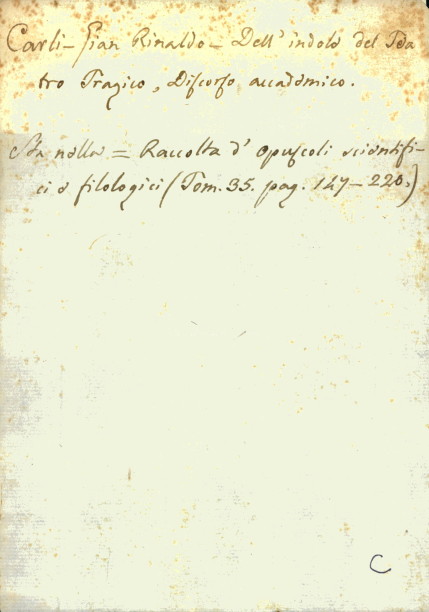 Carli - Gian Rinaldo - Dell' indole del Tea
tro Tragico, Discorso accademico.
Sta nella = Raccolta d' opuscoli scientifi-
ci e filologici (Tom. 35. pag. 147 - 220.)
C